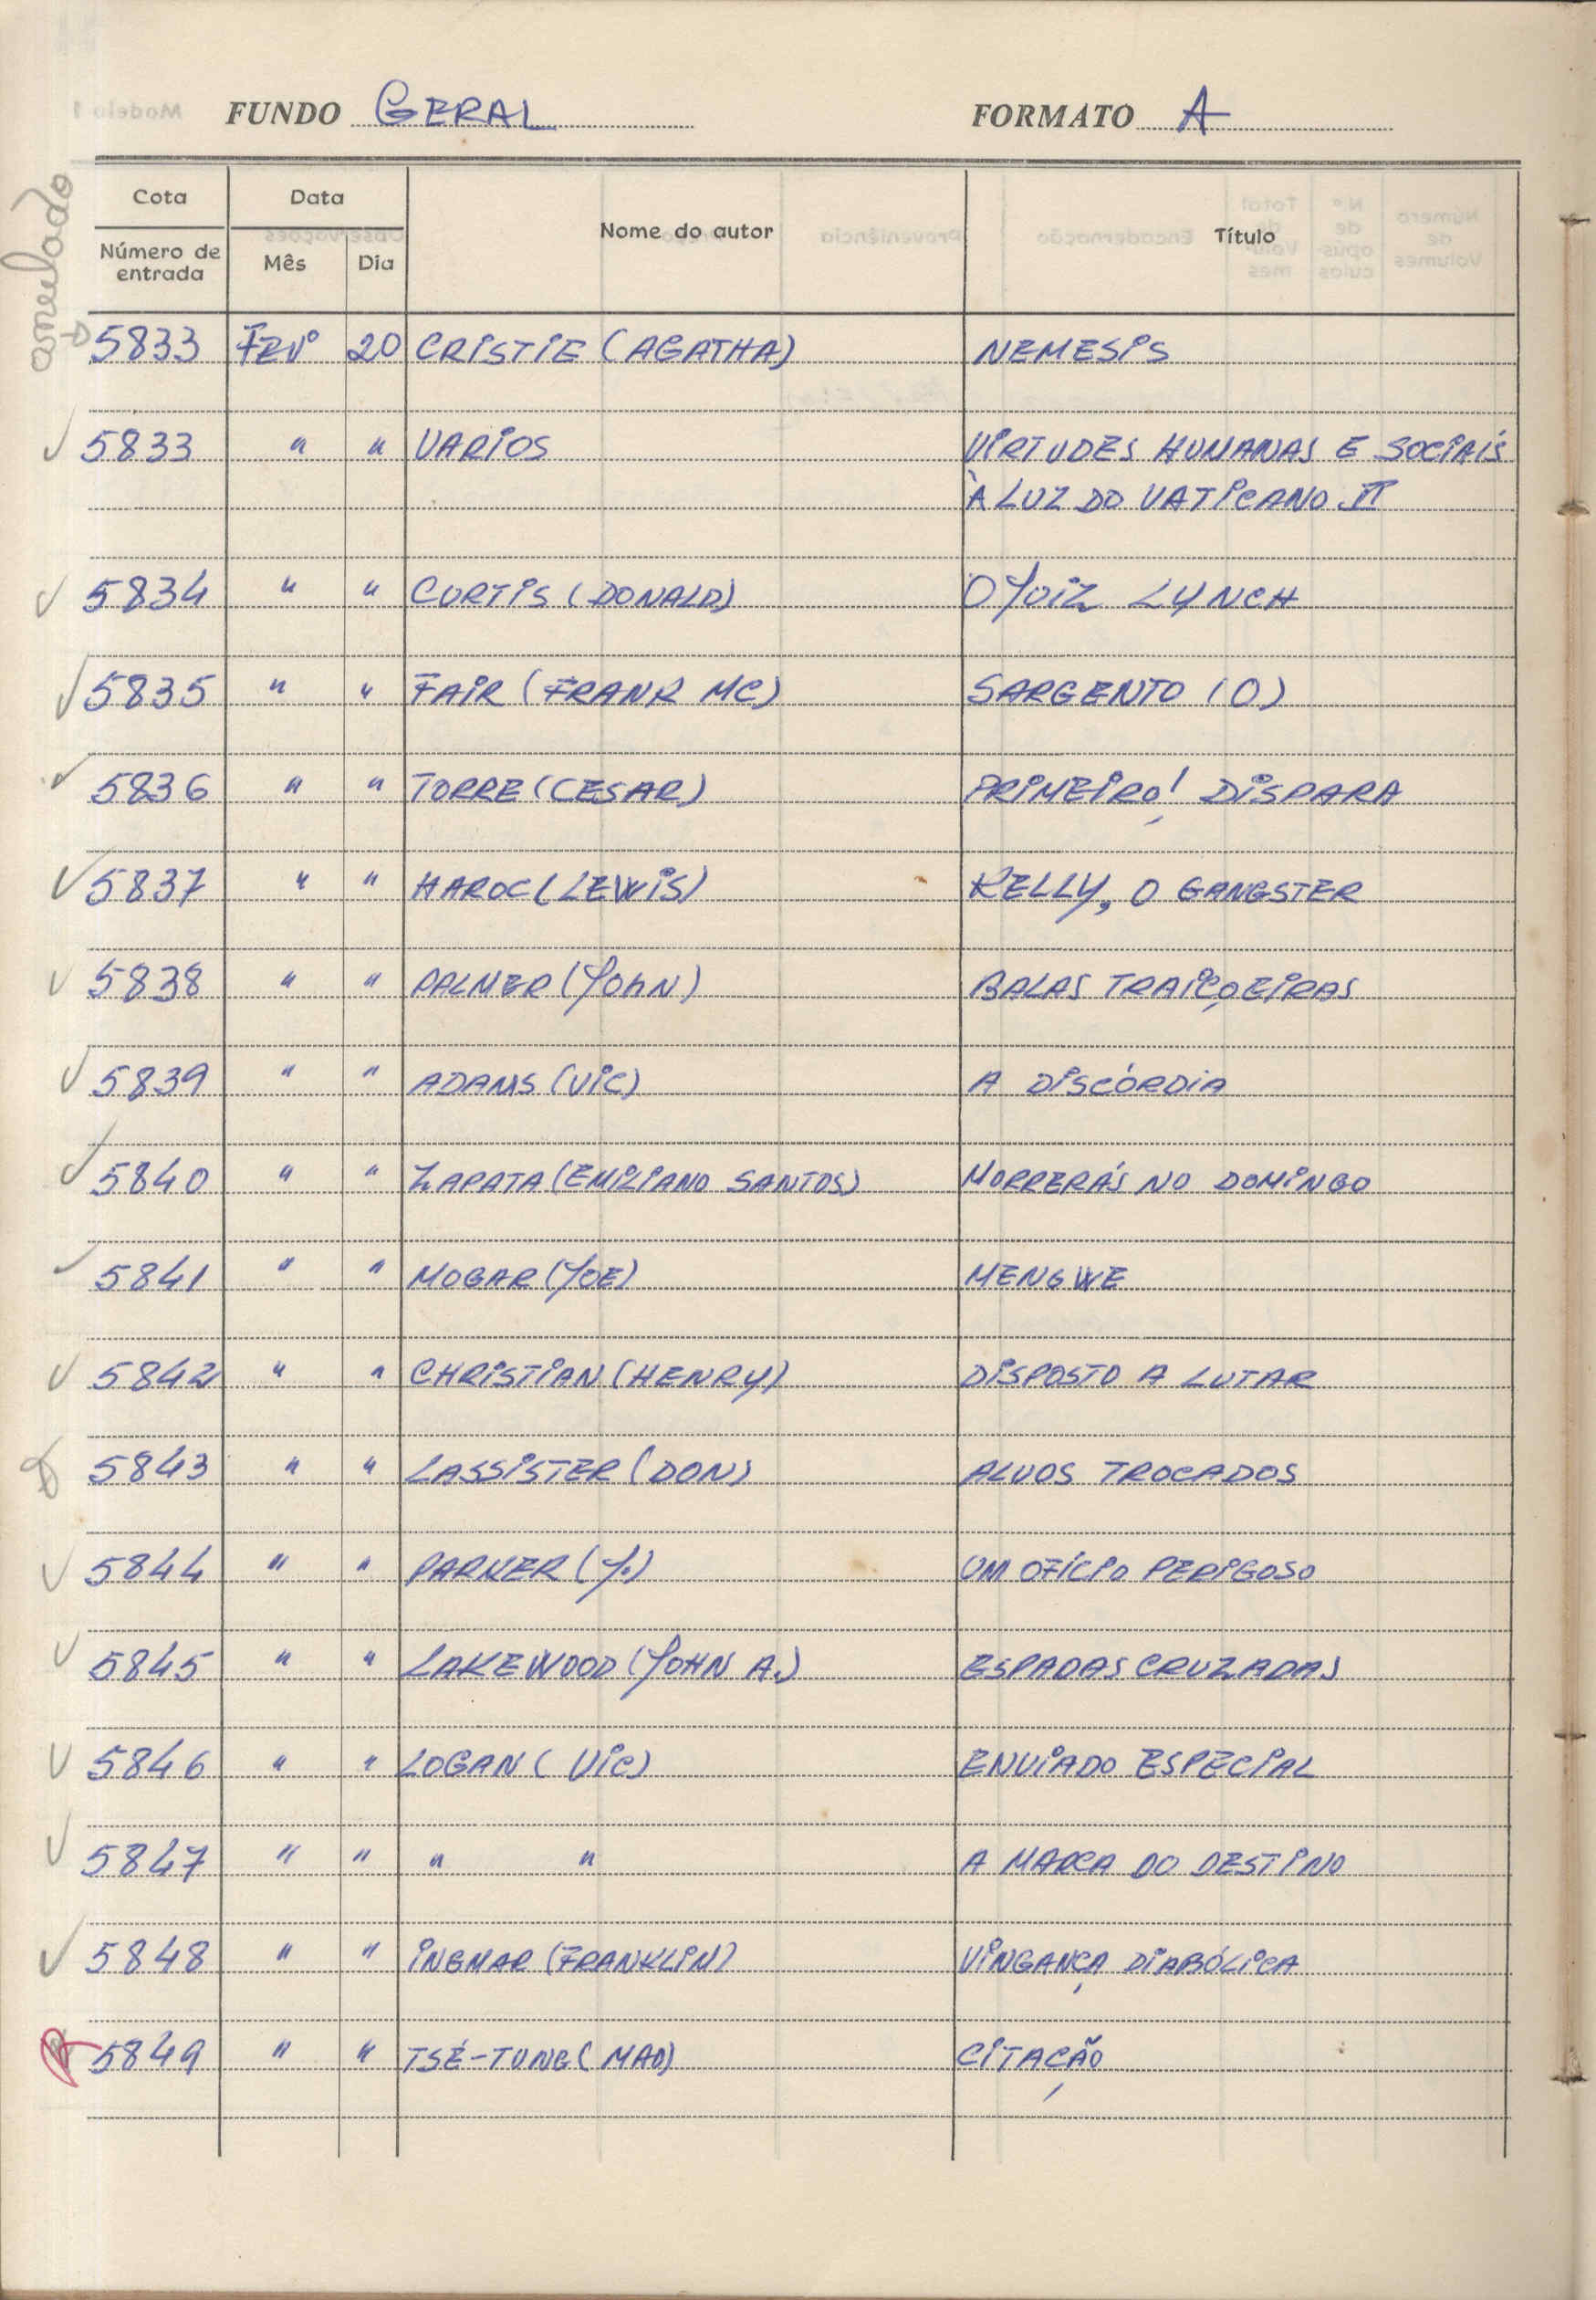 FUNDO GERAL FORMATO A
Cota Data Nome do autor Título
Número de entrada Mês Dia
anulado
5833 FEVº 20 CRISTIE (AGATHA) NEMESIS
5833 " " VARIOS VIRTUDES HUMANAS E SOCIAIS
À LUZ DO VATICANO II
5834 " " CURTIS (DONALD) O JUIZ LYNCH
5835 " " FAIR (FRANK MC) SARGENTO (O)
5836 " " TORRE (CESAR) PRIMEIRO, DISPARA
5837 " " HAROC (LEWIS) KELLY, O GANGSTER
5838 " " PALMER (JOHN) BALAS TRAIÇOEIRAS
5839 " " ADAMS (VIC) A DISCÓRDIA
5840 " " ZAPATA (EMILIANO SANTOS) MORRERÁS NO DOMINGO
5841 " " MOGAR (JOE) MENGWE
5842 " " CHRISTIAN (HENRY) DISPOSTO A LUTAR
5843 " " LASSISTER (DON) ALVOS TROCADOS
5844 " " PARKER (J.) UM OFÍCIO PERIGOSO
5845 " " LAKEWOOD (JOHN A.) ESPADAS CRUZADAS
5846 " " LOGAN (VIC) ENVIADO ESPECIAL
5847 " " " " A MARCA DO DESTINO
5848 " " INGMAR (FRANKLIN) VINGANÇA DIABÓLICA
5849 " " TSÉ-TUNG (MAO) CITAÇÃO